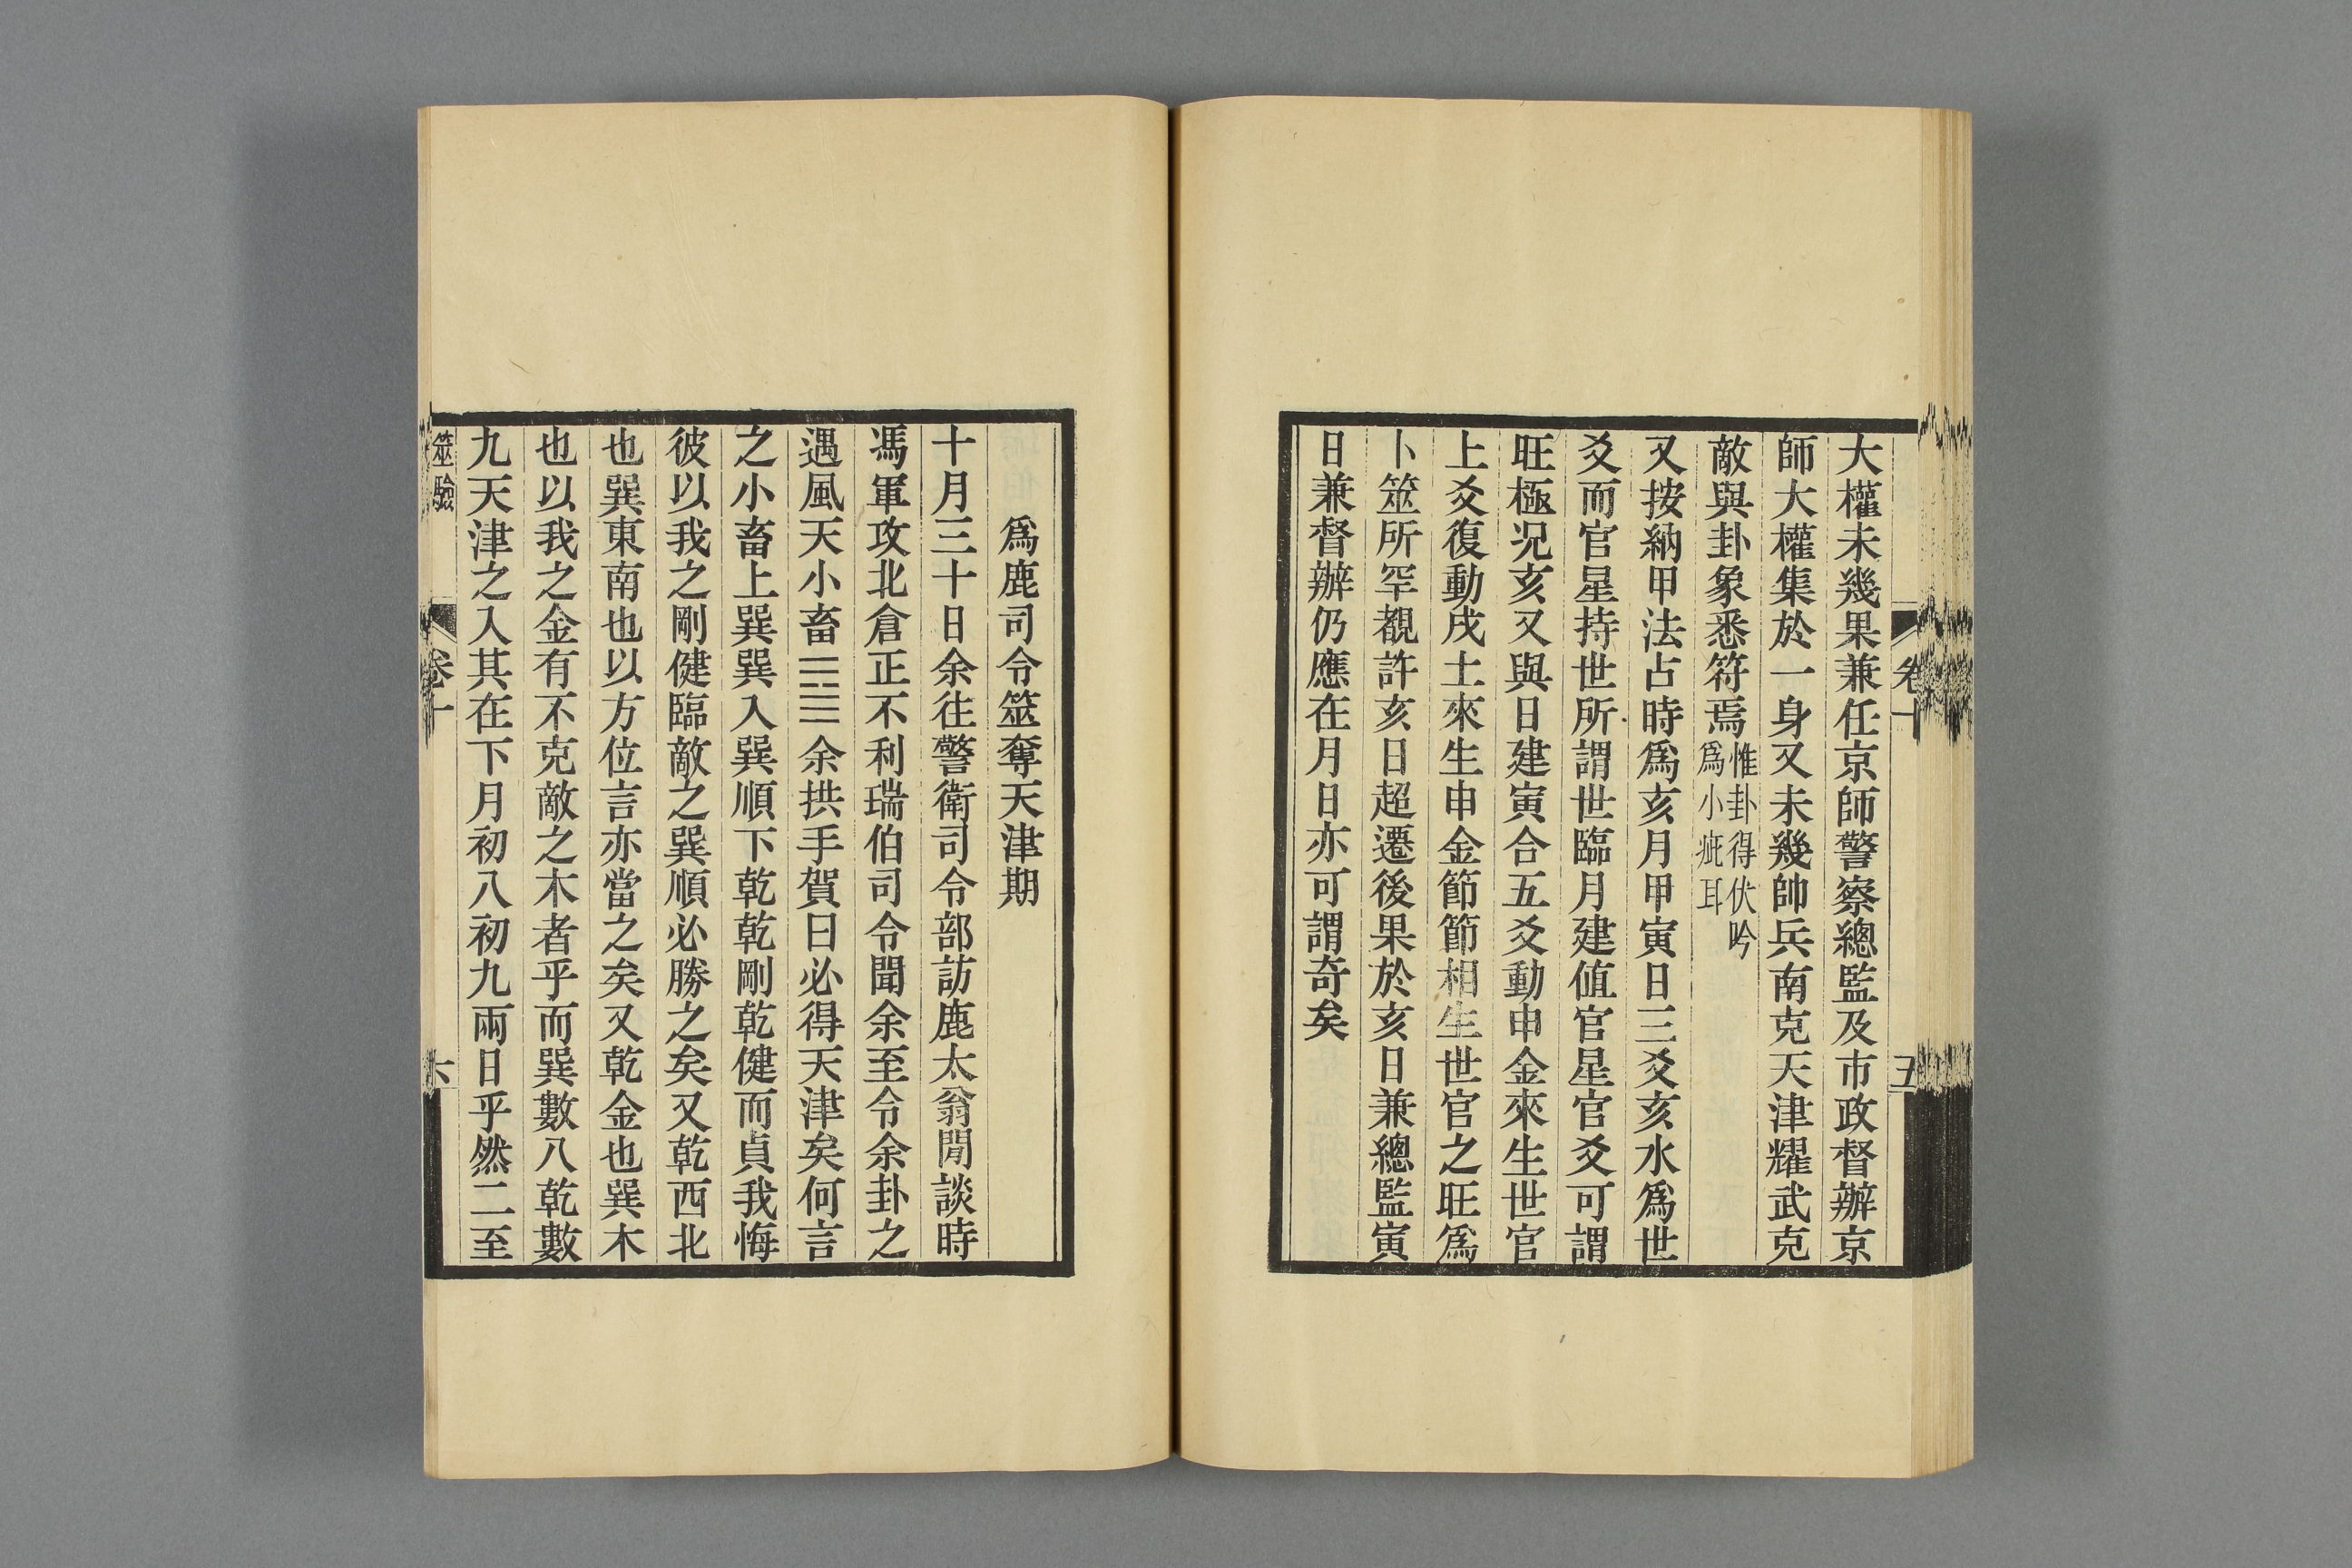 大權未幾果兼任京師警察總監及市政督辦京
師大權集於一身又未幾帥兵南克天津耀武克
敵與卦象悉符焉惟卦得伏吟
爲小疵耳
又按納甲法占時爲亥月甲寅日三爻亥水爲世
爻而官星持世所謂世臨月建值官星官爻可謂
旺極况亥又與日建寅合五爻動申金來生世官
上爻復動戌土來生申金節節相生世官之旺爲
卜筮所罕覩許亥日超遷後果於亥日兼總監寅
日兼督辦仍應在月日亦可謂奇矣
卷十
五
爲鹿司令筮奪天津期
十月三十日余往警衛司令部訪鹿太翁閒談時
馮軍攻北倉正不利瑞伯司令聞余至令余卦之
遇風天小畜余拱手賀曰必得天津矣何言
之小畜上巽巽入巽順下乾乾剛乾健而貞我悔
彼以我之剛健臨敵之巽順必勝之矣又乾西北
也巽東南也以方位言亦當之矣又乾金也巽木
也以我之金有不克敵之木者乎而巽數八乾數
九天津之入其在下月初八初九兩日乎然二至
筮驗
卷十
六